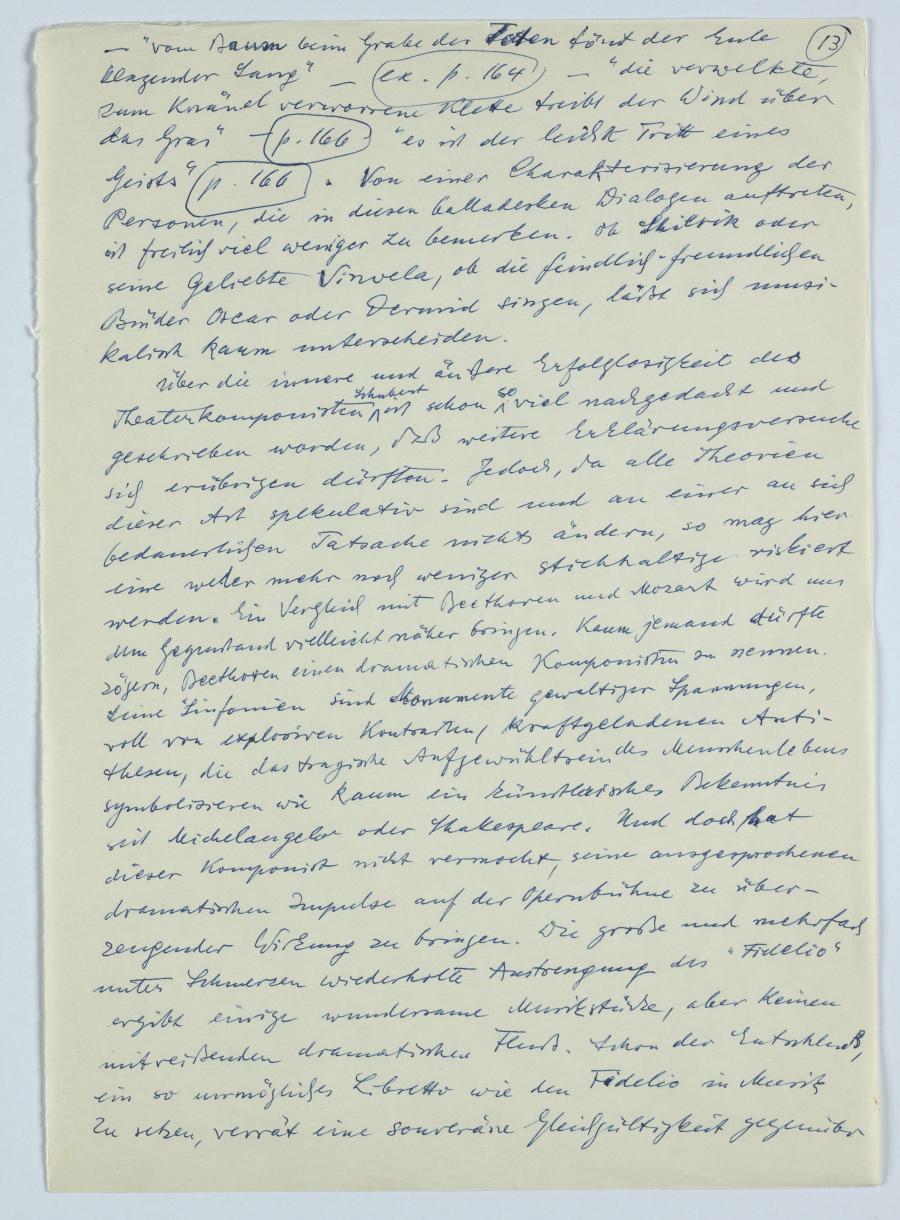 13
— "vom Baum beim Grabe der Toten tönt der Eule
klagender Sang" — (ex. p. 164) — "die verwelkte,
zum Knäuel verworrene Klette treibt der Wind über
das Gras" — (p. 166) "es ist der leichte Tritt eines
Geists" (p. 166). Von einer Charakterisierung der
Personen, die in diesen balladesken Dialogen auftreten,
ist freilich viel weniger zu bemerken. Ob Shilrik oder
seine Geliebte Vinvela, ob die feindlich-freundlichen
Brüder Oscar oder Dermid singen, läßt sich musi-
kalisch kaum unterscheiden.
Über die innere und äußere Erfolglosigkeit des
Theaterkomponisten Schubert ist schon so viel nachgedacht und
geschrieben worden, daß weitere Erklärungsversuche
sich erübrigen dürften. Jedoch, da alle Theorien
dieser Art spekulativ sind und an einer an sich
bedauerlichen Tatsache nichts ändern, so mag hier
eine weder mehr noch weniger stichhaltige riskiert
werden. Ein Vergleich mit Beethoven und Mozart wird uns
dem Gegenstand vielleicht näher bringen. Kaum jemand dürfte
zögern, Beethoven einen dramatischen Komponisten zu nennen.
Seine Sinfonien sind Monumente gewaltiger Spannungen,
voll von explosiven Kontrasten, kraftgeladenen Anti-
thesen, die das tragische Aufgewühltsein des Menschenlebens
symbolisieren wie kaum ein künstlerisches Bekenntnis
seit Michelangelo oder Shakespeare. Und doch hat
dieser Komponist nicht vermocht, seine ausgesprochenen
dramatischen Impulse auf der Opernbühne zu über-
zeugender Wirkung zu bringen. Die große und mehrfach
unter Schmerzen wiederholte Anstrengung des "Fidelio"
ergibt einige wundersame Musikstücke, aber keinen
mitreißenden dramatischen Fluß. Schon der Entschluß,
ein so unmögliches Libretto wie den Fidelio in Musik
zu setzen, verrät eine souveräne Gleichgültigkeit gegenüber